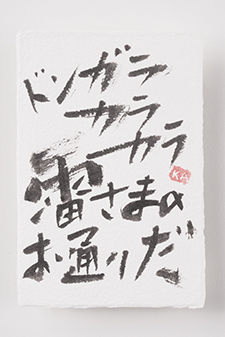 ドンガラ
カラ
カラ
雷さまの
お通りだ
KA